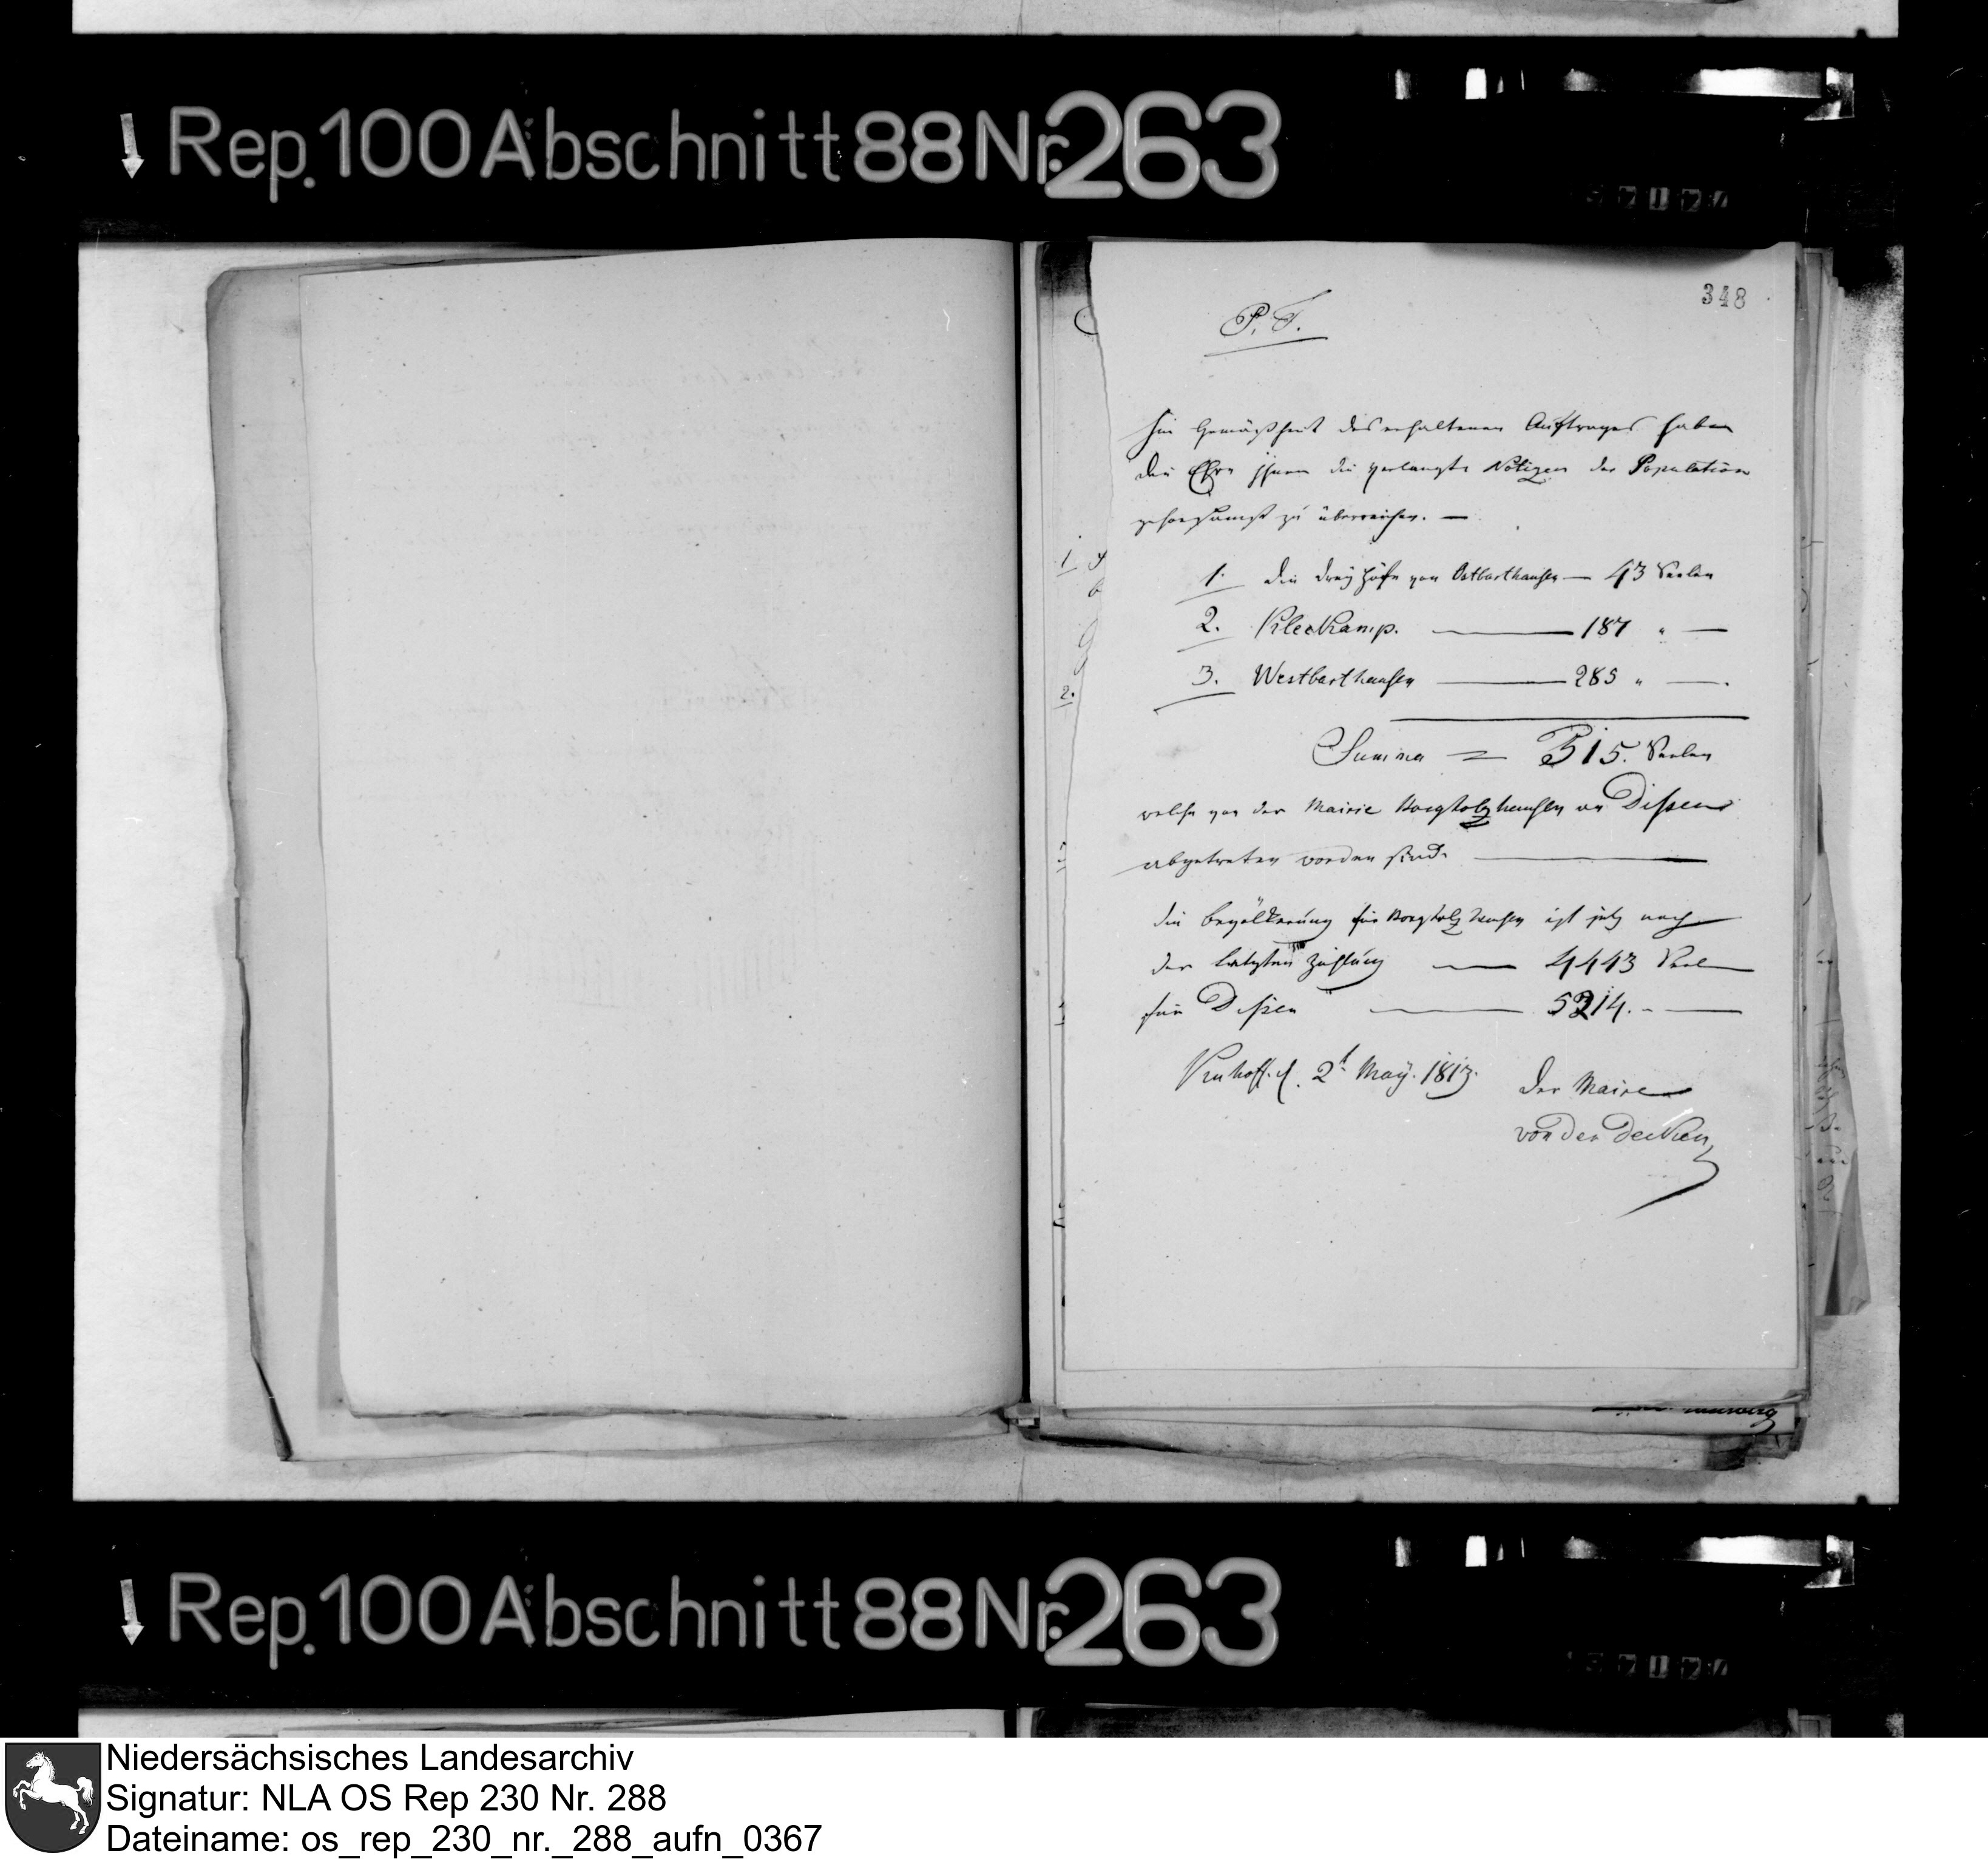 Rep. 100 Abschnitt 88 Nr. 263
348
P. T.
In Gemäßheit des erhaltenen Auftrages habe
die Ehre Ihnen die verlangte Notizen der Population
gehorsamst zu überreichen. —
1. die drey Höfe von Ostbarthausen — 43 Seelen
2. Kleekamp. — 187 " —
3. Westbarthausen — 285 " —.
Summa = 515. Seelen
welche von der Mairie Borgholzhausen an Dissen
abgetreten worden sind. —
die Bevölkerung für Borgholzhausen ist jetz nach
der letzten Zählung — 4443 Seelen
für Dissen — 5214. - —
2t May. 1813. der Maire
von der Decken
Rep. 100 Abschnitt 88 Nr. 263
Niedersächsisches Landesarchiv
Signatur: NLA OS Rep 230 Nr. 288
Dateiname: os_rep_230_nr._288_aufn_0367